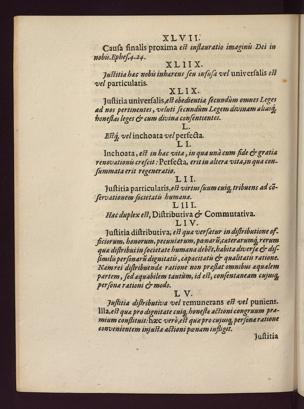 XLVII.
Causa finalis proxima est instauratio imaginis Dei in
nobis. Ephes. 4.24.
XLIIX.
Justitia hæc nobis inhærens seu infusa vel universalis est
vel particularis.
XLIX.
Justitia universalis, est obedientia secundùm omnes Leges
ad nos pertinentes, veluti secundùm Legem divinam aliasq́;
honestas leges & cum divina consentientes.
L.
Estq́; vel inchoata vel perfecta.
LI.
Inchoata, est in hac vita, in qua unà cum fide & gratia
renovationis crescit: Perfecta, erit in altera vita, in qua con-
summata erit regeneratio.
LII.
Justitia particularis, est virtus suum cuiq; tribuens ad cō-
servationem societatis humanæ.
LIII.
Hæc duplex est, Distributiva & Commutativa.
LIV.
Justitia distributiva, est quæ versatur in distributione of-
ficiorum, honorum, pecuniarum, pænarū, cæterarumq́; rerum
quas distribui in societate humana debēt, habita diversæ & dis-
similis personarū dignitatis, capacitatis & qualitatis ratione.
Nam rei distribuendæ ratione non præstat omnibus æqualem
partem, sed æquabilem tantùm, id est, consentaneam cujusq;
personæ rationi & modo.
LV.
Justitia distributiva vel remunerans est vel puniens.
Illa, est quæ pro dignitate cuiq; honestæ actioni congruum præ-
mium constituit: hæc verò, est quæ pro cujusq; personæ ratione
convenientem injustæ actioni pœnam infligit.
Justitia